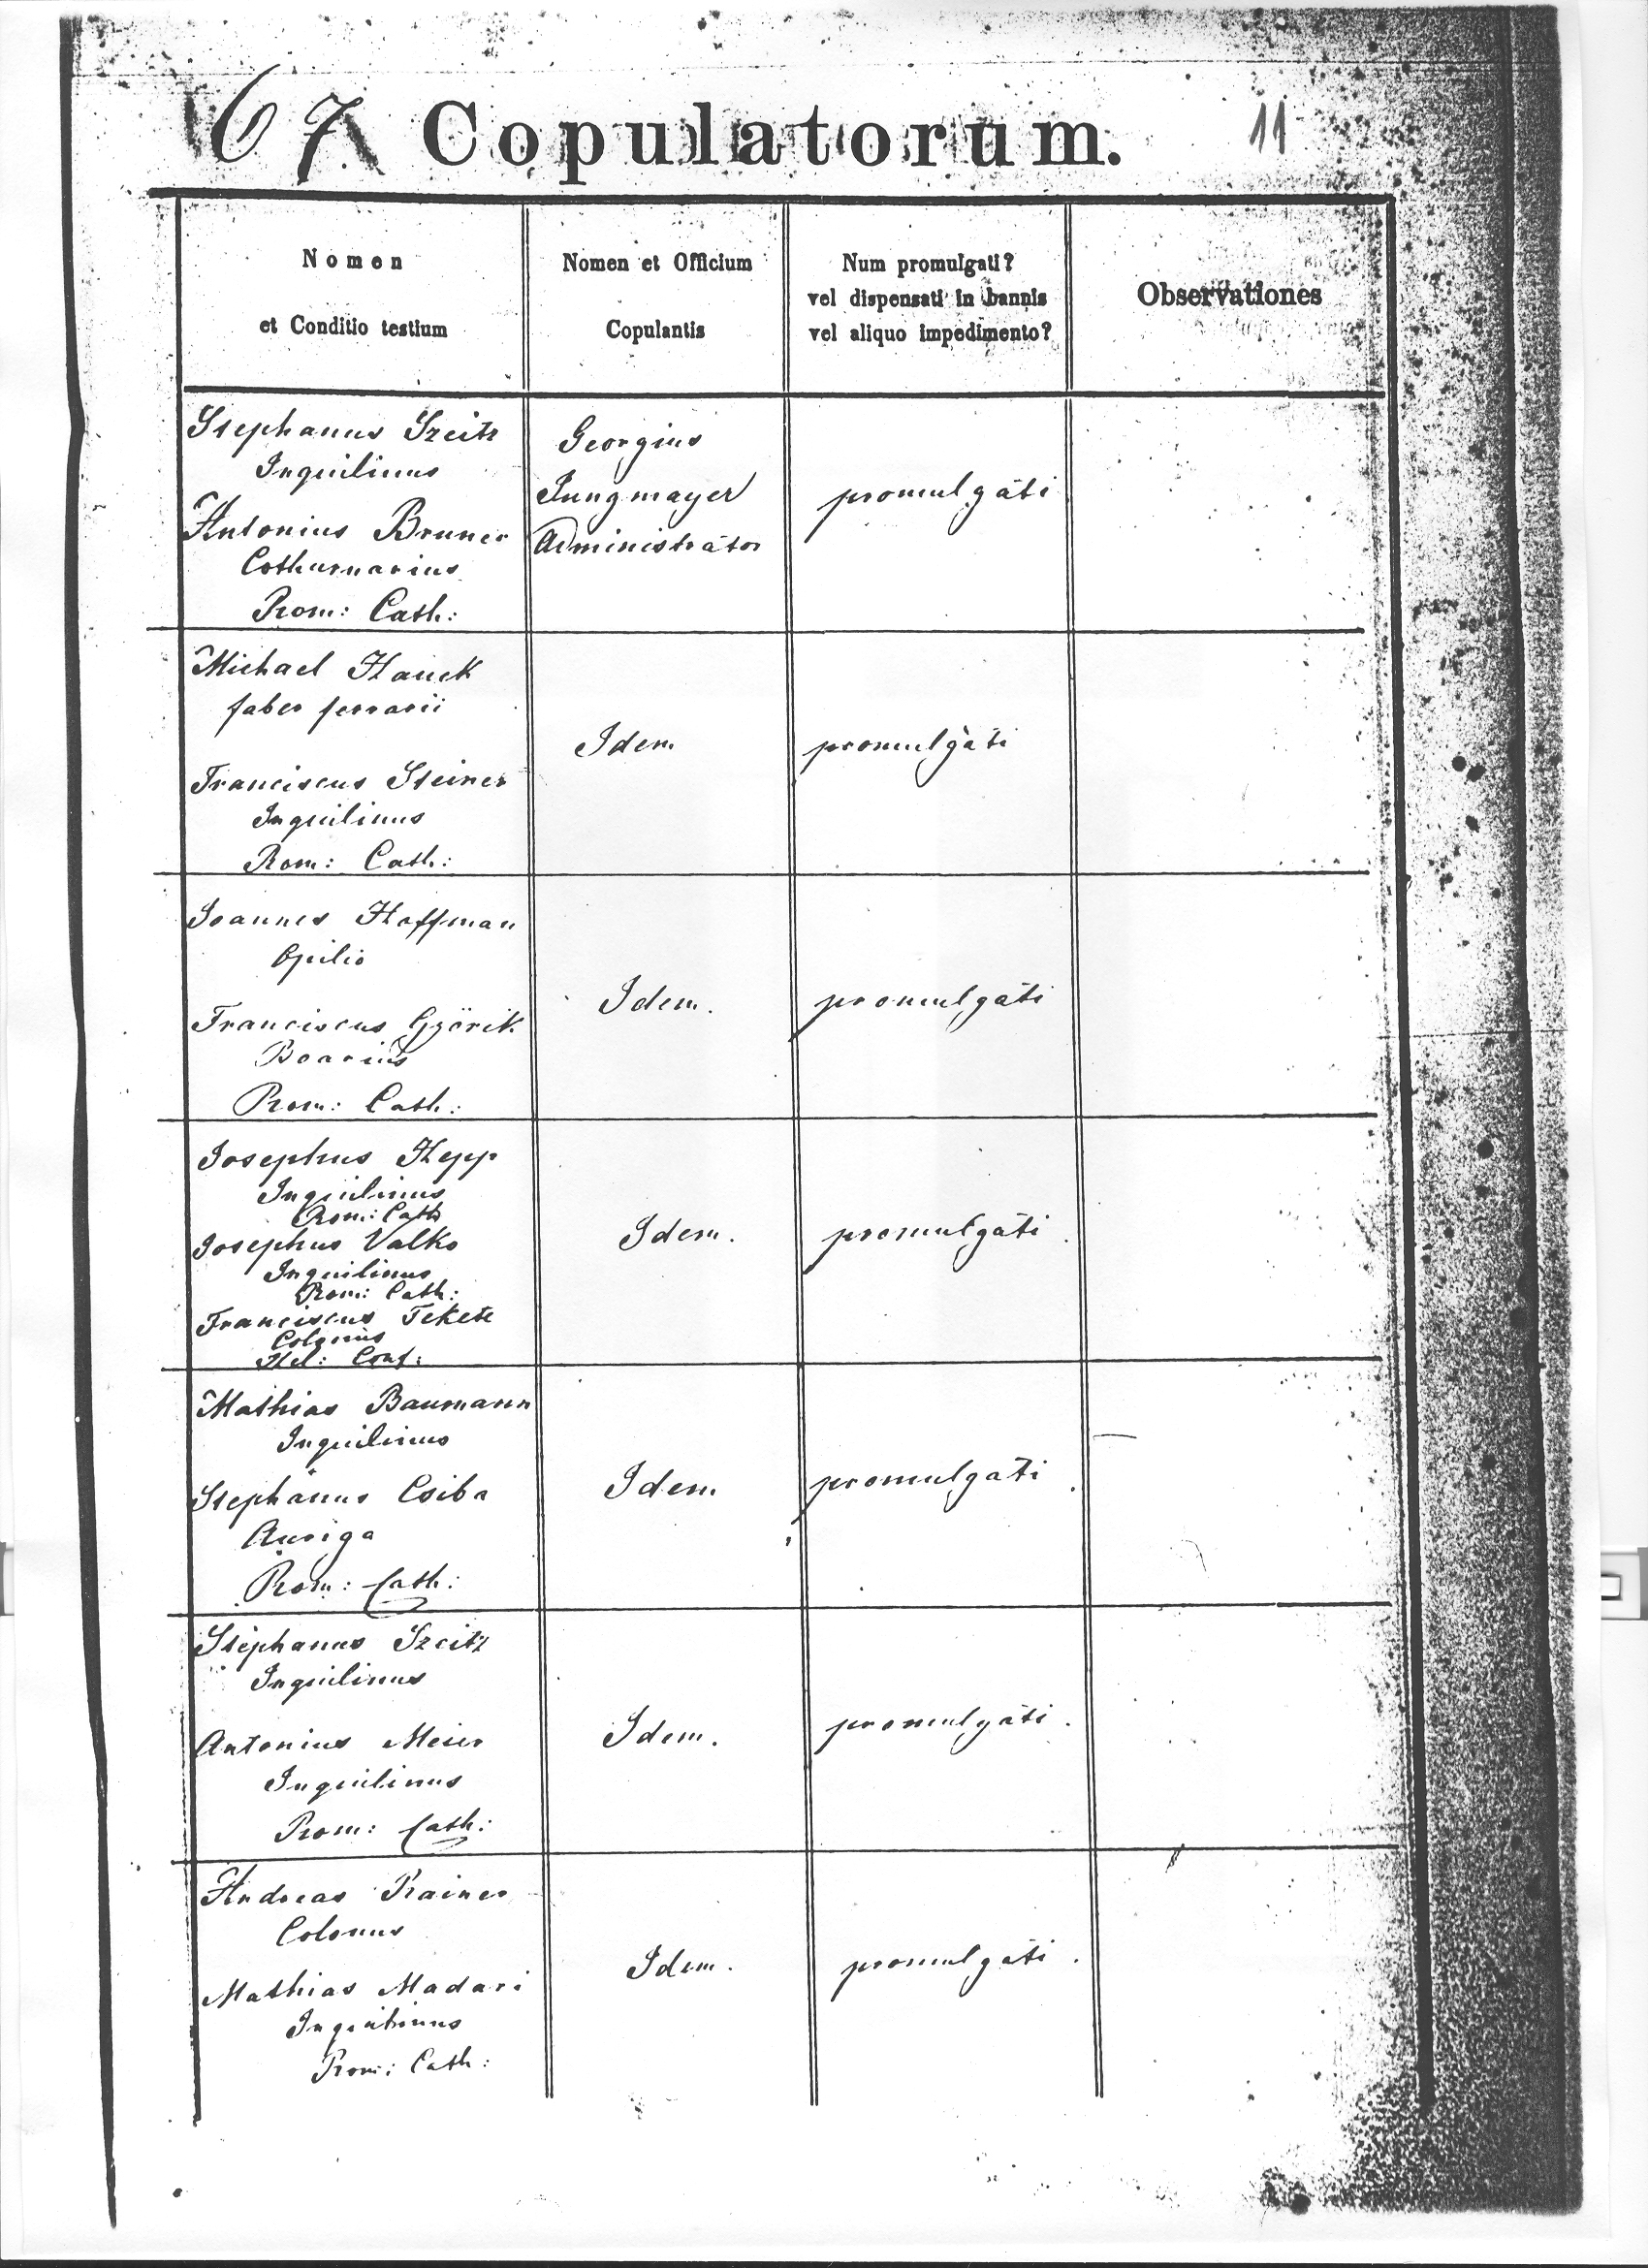 67 Copulatorum. 11
Nomen
et Conditio testium
Nomen et Officium
Copulantis
Num promulgati?
vel dispensati in bannis
vel aliquo impedimento?
Observationes
Stephanus Szeitz
Inquilinus
Antonius Bruner
Cothurnarius
Rom: Cath:
Georgius
Jungmayer
Administrator
promulgáti
Michael Hauck
faber ferrarii
Franciscus Steiner
Inquilinus
Rom: Cath:
Idem
promulgáti
Joannes Hoffman
Opilio
Franciscus Györik
Boarius
Rom: Cath:
Idem.
promulgáti
Josephus Hepp
Inquilinus
Rom: Cath
Josephus Valko
Inquilinus
Rom: Cath:
Franciscus Fekete
Colonus
Hel: Conf:
Idem.
promulgáti
Mathias Baumann
Inquilinus
Stephanus Csiba
Auriga
Rom: Cath:
Idem
promulgáti
Stephanus Szeitz
Inquilinus
Antonius Meier
Inquilinus
Rom: Cath:
Idem.
promulgáti.
Andreas Rainer
Colonus
Mathias Madari
Inquilinus
Rom: Cath:
Idem.
promulgáti.